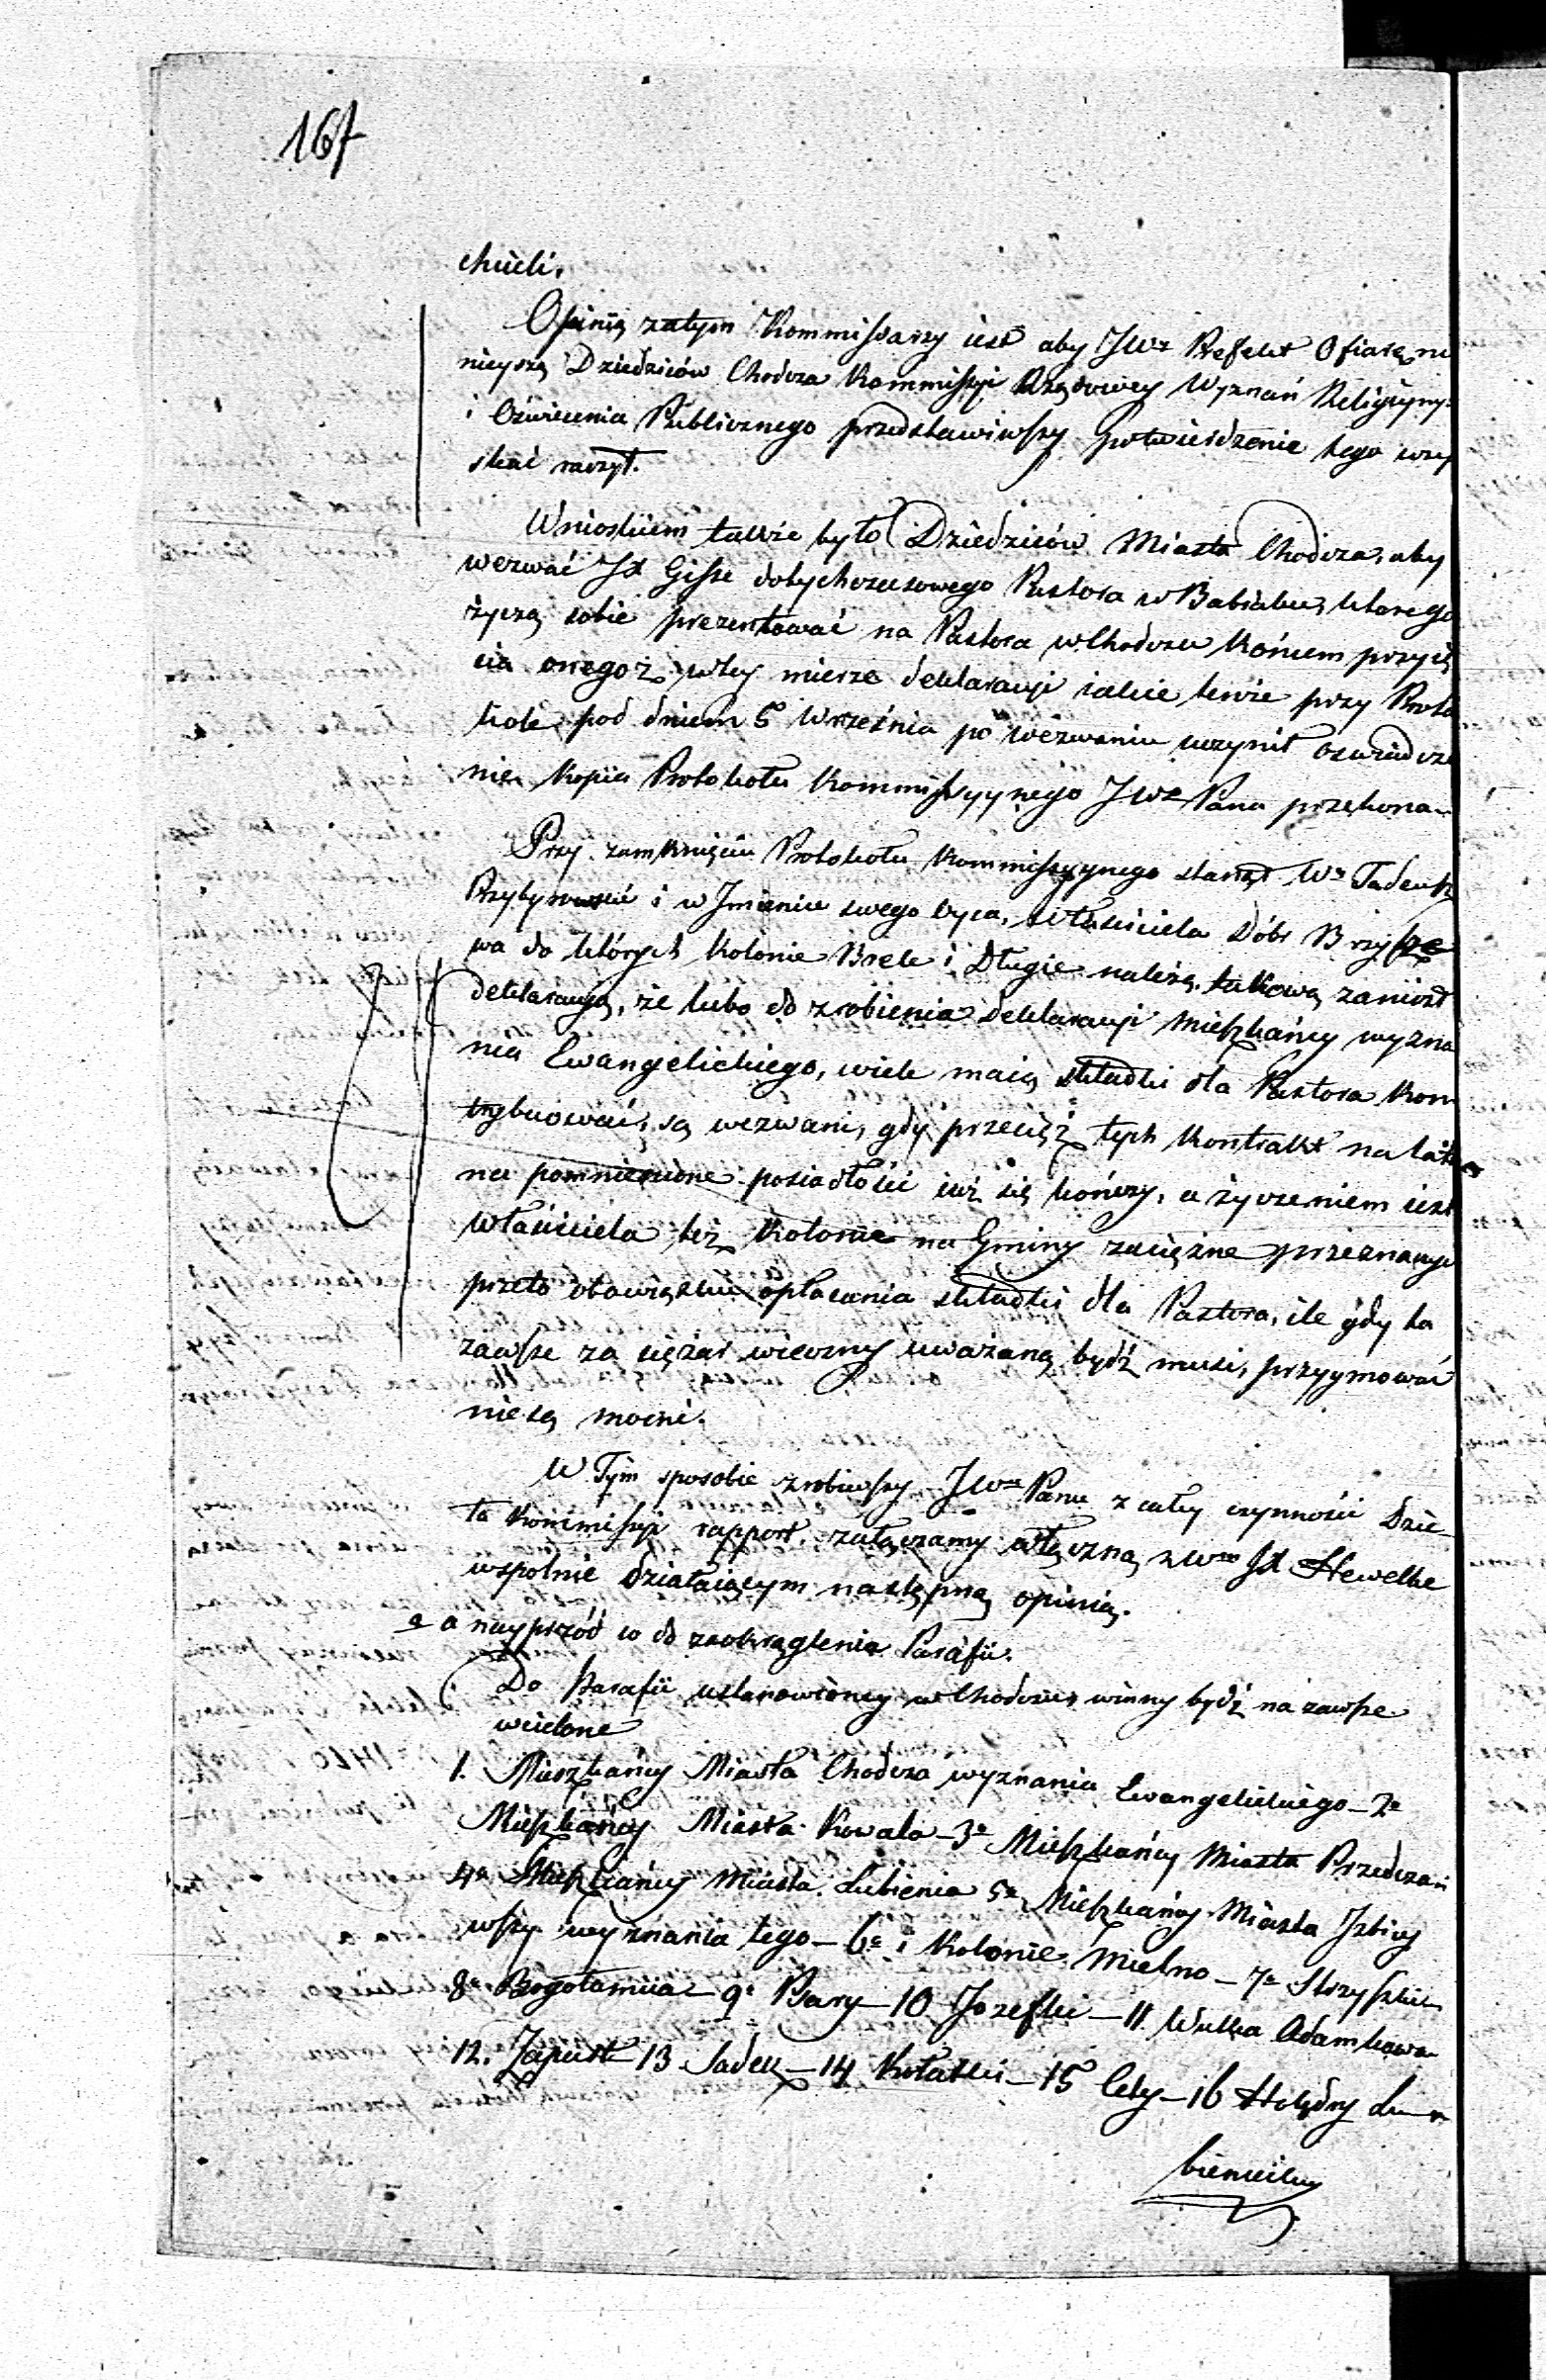 167
chcieli.
Opinią zatym Kommissarzy iest aby JWz Prefekt Ofiarę ni
nieyszą Dziedziców Chodcza Kommissyi Rządowey Wyznań Religiyny
i Oświecenia Publicznego przedstawiwszy potwierdzenie tego uzy
skać raczył.
Wnioskiem także było Dziedziców Miasta Chodcza, aby
wezwać JX Gisse dotychczasowego Pastora w Babiaku, którego
życzą sobie prezentować na Pastora w Chodczu końcem przyię
cia onegoż w tey mierze deklaracyi iakie tenże przy Proto
kole pod dniem 5 Września po wezwaniu uczynił oświadcze
nie, kopia Protokołu Kommissyynego JWz Pana przekona
Przy zamknięciu Protokołu Kommissyynego stanął Wz Tadeusz
Przybyszewski i w Jmieniu swego oyca, właściciela Dóbr Brzysze
wa do których kolonie Brele i Długie należą, takową zaniósł
deklaracyą, że lubo do zrobienia deklaracyi mieszkańcy wyzna
nia Ewangelickiego, wiele maią składki dla Pastora kon
trybuować, są wezwani, gdy przecięż tych kontrakt na lata
na pomnienione posiadłości iuż się kończy, a życzeniem iest
Właściciela też kolonie na Gminy zaciężne przeznaczyć
przeto obowiązku opłacania składki dla Pastora, ile gdy ta
zawsze za ciężar wieczny uważaną bydź musi, przyymować
nie są mocni.
W Tym sposobie zrobiwszy JWu Panu z całey czynności Dzie
ta Kommissyi rapport, załączamy włączną z Wm JX Hewelke
wspolnie działaiącym następną opinią.
a nayprzód co do zaokrąglenia Parafii.
Do Parafii ustanowioney w Chodczu winny bydź na zawsze
wcielone
1. Mieszkańcy Miasta Chodcza wyznania Ewangelickiego – 2e
Mieszkańcy Miasta Kowala – 3e Mieszkańcy Miasta Przedcza
4e Mieszkańcy Miasta Lubienia 5e Mieszkańcy Miasta Jzbicy
wszy wyznania tego – 6e i Kolonie Mielno – 7e Strzyszki
8e Bogołomia – 9e Psary – 10 Jozefki – 11 Wulka Adamkowa
12. Zapust – 13 Sadek – 14 Kołatki – 15 Cety – 16 Holędry Lu
bieńieckie